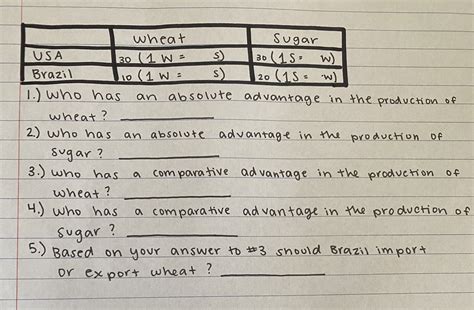 wheat Sugar
USA 30 (1 W = S) 30 (1S = W)
Brazil 10 (1 W = S) 20 (1S = W)
1.) Who has an absolute advantage in the production of
wheat?
2) Who has an absolute advantage in the production of
sugar?
3.) Who has a comparative advantage in the production of
wheat?
4.) Who has a comparative advantage in the production of
sugar?
5.) Based on your answer to #3 should Brazil import
or export wheat?